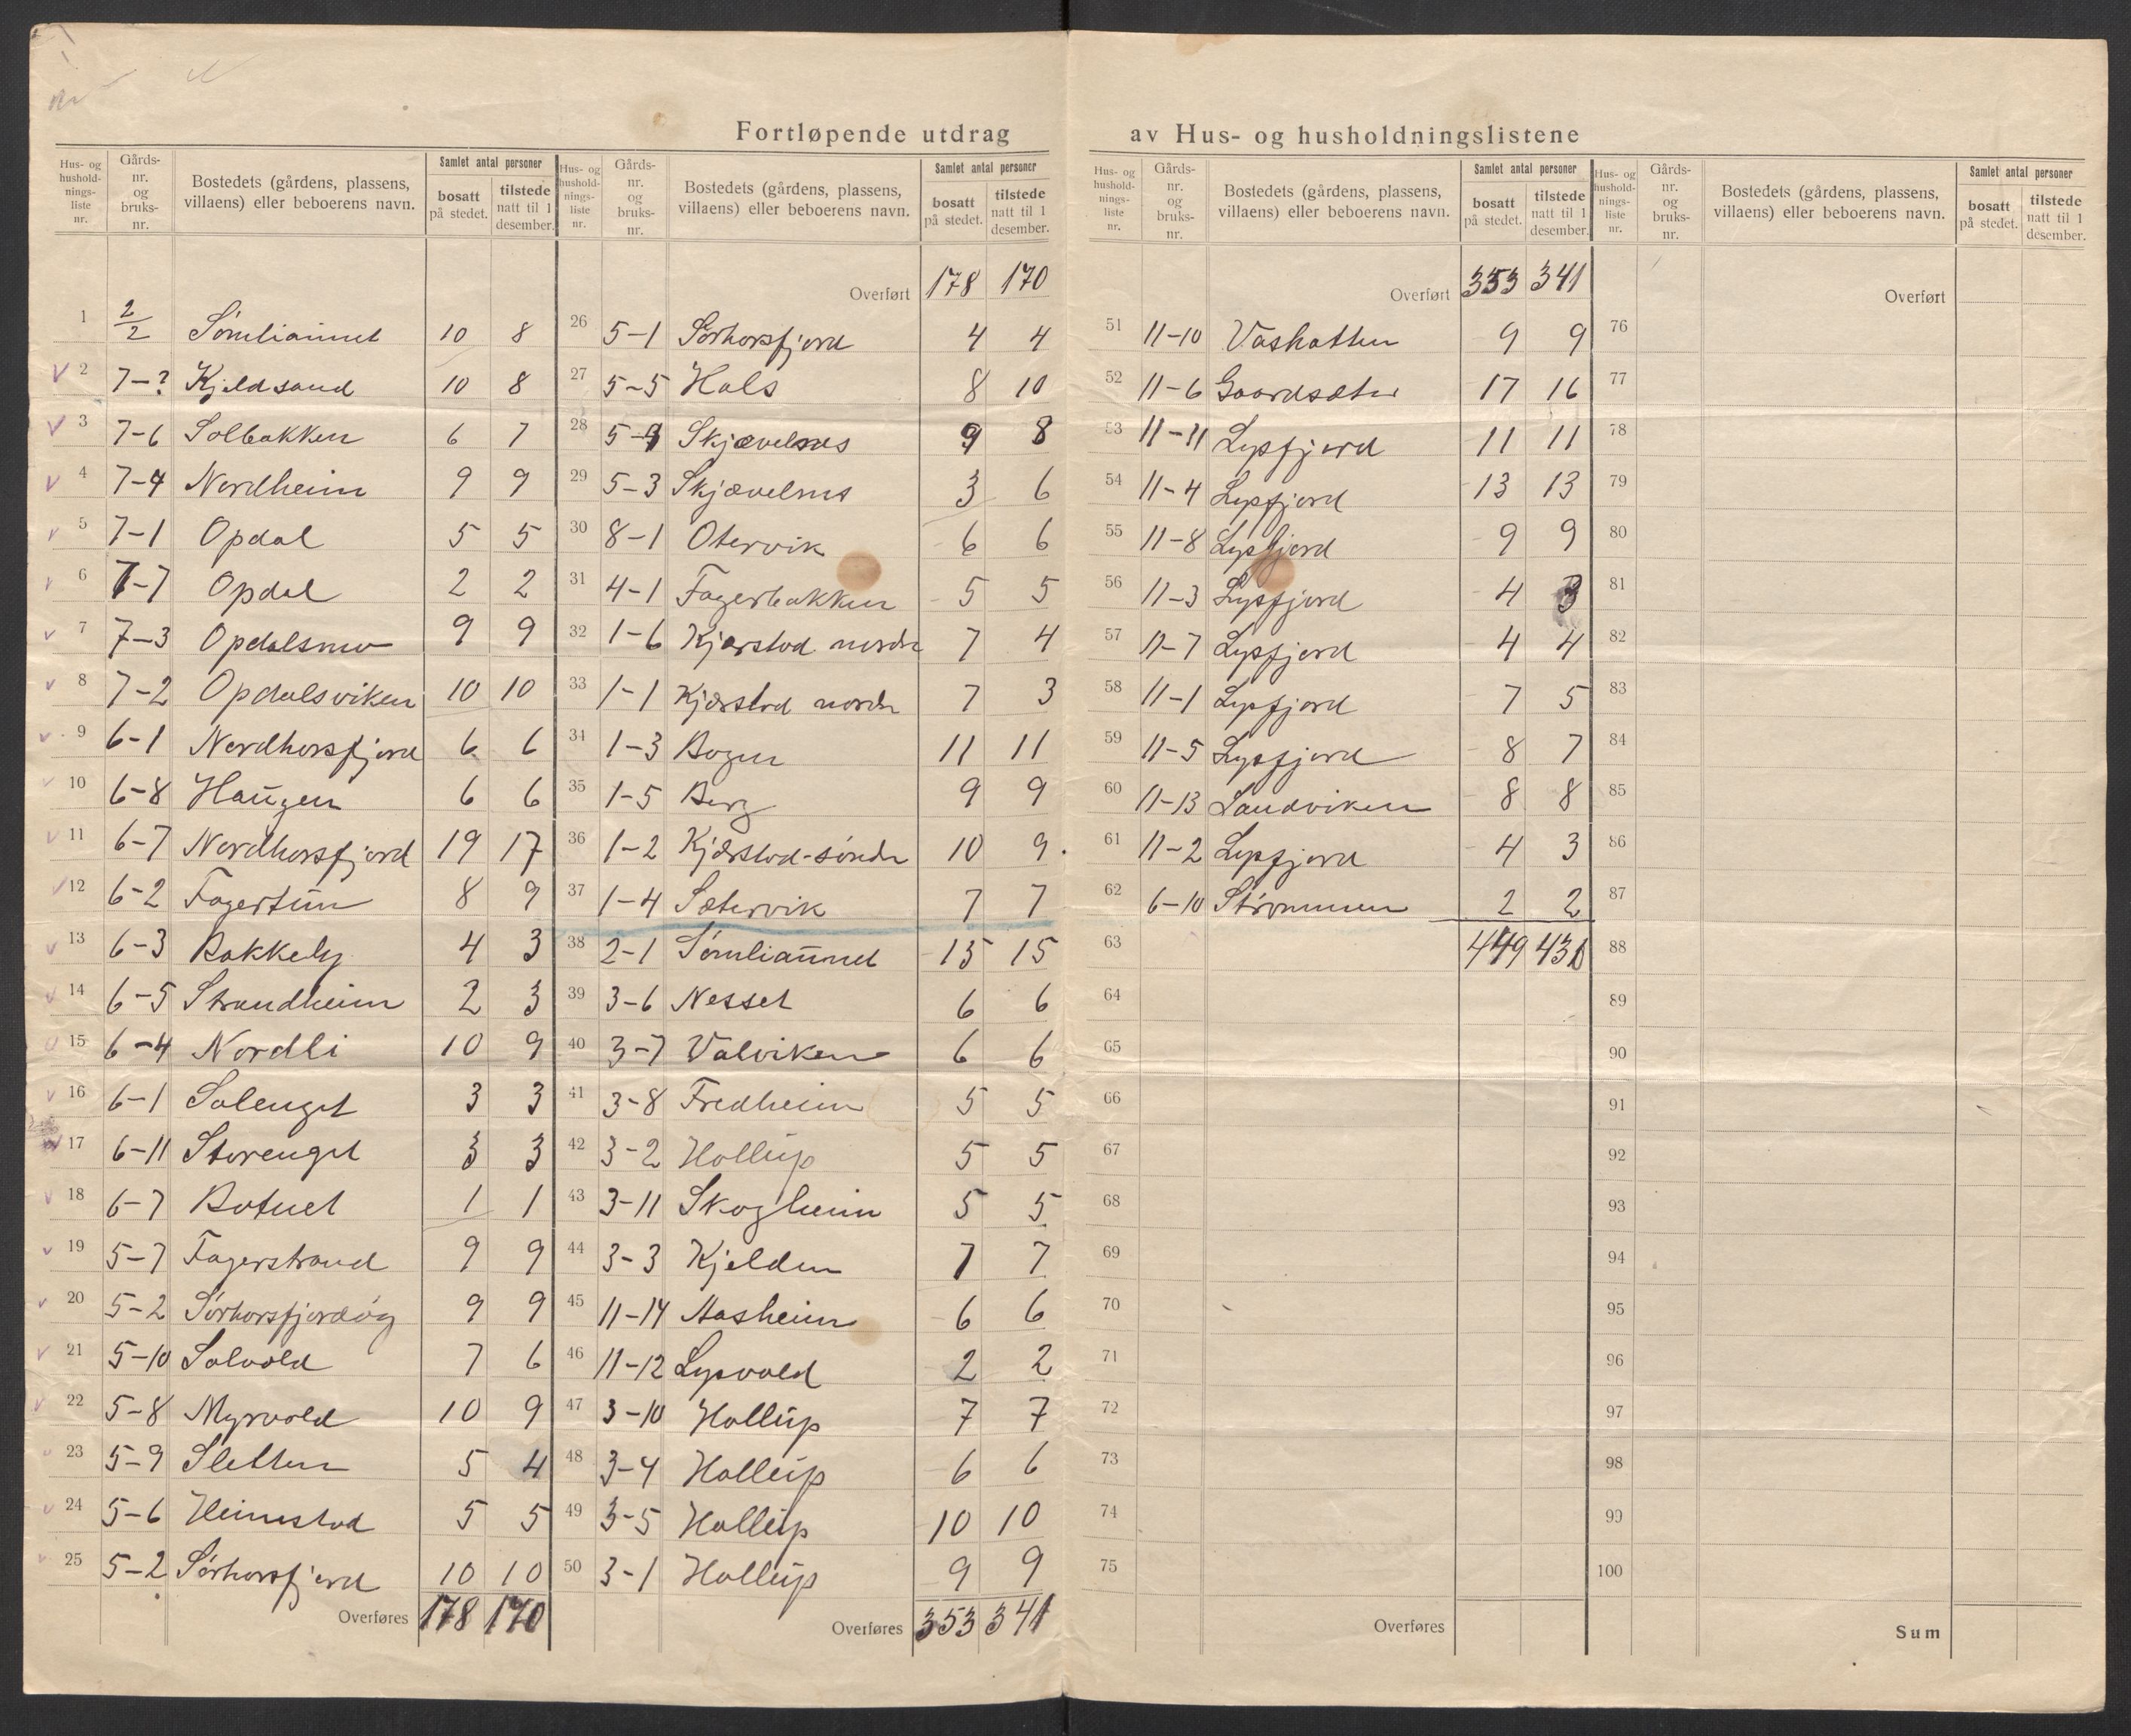 Fortløpende utdrag av Hus- og husholdningslistene
Hus- og husholdningsliste nr. Gårdsnr. og bruksnr. Bostedets (gårdens, plassens, villaens) eller beboerens navn. Samlet antal personer bosatt på stedet. tilstede natt til 1 desember.
1 2/2 Sømliaunet 10 8
2 7-? Kjeldsand 10 8
3 7-6 Solbakken 6 7
4 7-4 Nordheim 9 9
5 7-1 Opdal 5 5
6 7-7 Opdal 2 2
7 7-3 Opdalsmo 9 9
8 7-2 Opdalsviken 10 10
9 6-1 Nordhorsfjord 6 6
10 6-8 Haugen 6 6
11 6-7 Nordhorsfjord 19 17
12 6-2 Fagertun 8 9
13 6-3 Bakkely 4 3
14 6-5 Strandheim 2 3
15 6-4 Nordli 10 9
16 6-1 Solenget 3 3
17 6-11 Storenget 3 3
18 6-7 Botnet 1 1
19 5-7 Fagerstrand 9 9
20 5-2 Sørhorsfjordøy 9 9
21 5-10 Solvold 7 6
22 5-8 Myrvold 10 9
23 5-9 Sletten 5 4
24 5-6 Heimstad 5 5
25 5-2 Sørhorsfjord 10 10
Overføres 178 170
Hus- og husholdningsliste nr. Gårdsnr. og bruksnr. Bostedets (gårdens, plassens, villaens) eller beboerens navn. Samlet antal personer bosatt på stedet. tilstede natt til 1 desember.
Overført 178 170
26 5-1 Sørhorsfjord 4 4
27 5-5 Hals 8 10
28 5-4 Skjævelnes 9 8
29 5-3 Skjævelnes 3 6
30 8-1 Otervik 6 6
31 4-1 Fagerbakken 5 5
32 1-6 Kjærstad nordre 7 4
33 1-1 Kjærstad nordre 7 3
34 1-3 Bogen 11 11
35 1-5 Berg 9 9
36 1-2 Kjærstad-søndre 10 9
37 1-4 Sætervik 7 7
38 2-1 Sømliaunet 15 15
39 3-6 Nesset 6 6
40 3-7 Valviken 6 6
41 3-8 Fredheim 5 5
42 3-2 Hollup 5 5
43 3-11 Skogheim 5 5
44 3-3 Kjelden 7 7
45 11-14 Aasheim 6 6
46 11-12 Lysvold 2 2
47 3-10 Hollup 7 7
48 3-4 Hollup 6 6
49 3-5 Hollup 10 10
50 3-1 Hollup 9 9
Overføres 353 341
Hus- og husholdningsliste nr. Gårdsnr. og bruksnr. Bostedets (gårdens, plassens, villaens) eller beboerens navn. Samlet antal personer bosatt på stedet. tilstede natt til 1 desember.
Overført 353 341
51 11-10 Vashatten 9 9
52 11-6 Gaardsæter 17 16
53 11-11 Lysfjord 11 11
54 11-4 Lysfjord 13 13
55 11-8 Lysfjord 9 9
56 11-3 Lysfjord 4 3
57 11-7 Lysfjord 4 4
58 11-1 Lysfjord 7 5
59 11-5 Lysfjord 8 7
60 11-13 Sandviken 8 8
61 11-2 Lysfjord 4 3
62 6-10 Strømmen 2 2
63 449 431
64
65
66
67
68
69
70
71
72
73
74
75
Overføres
Hus- og husholdningsliste nr. Gårdsnr. og bruksnr. Bostedets (gårdens, plassens, villaens) eller beboerens navn. Samlet antal personer bosatt på stedet. tilstede natt til 1 desember.
Overført
76
77
78
79
80
81
82
83
84
85
86
87
88
89
90
91
92
93
94
95
96
97
98
99
100
Sum